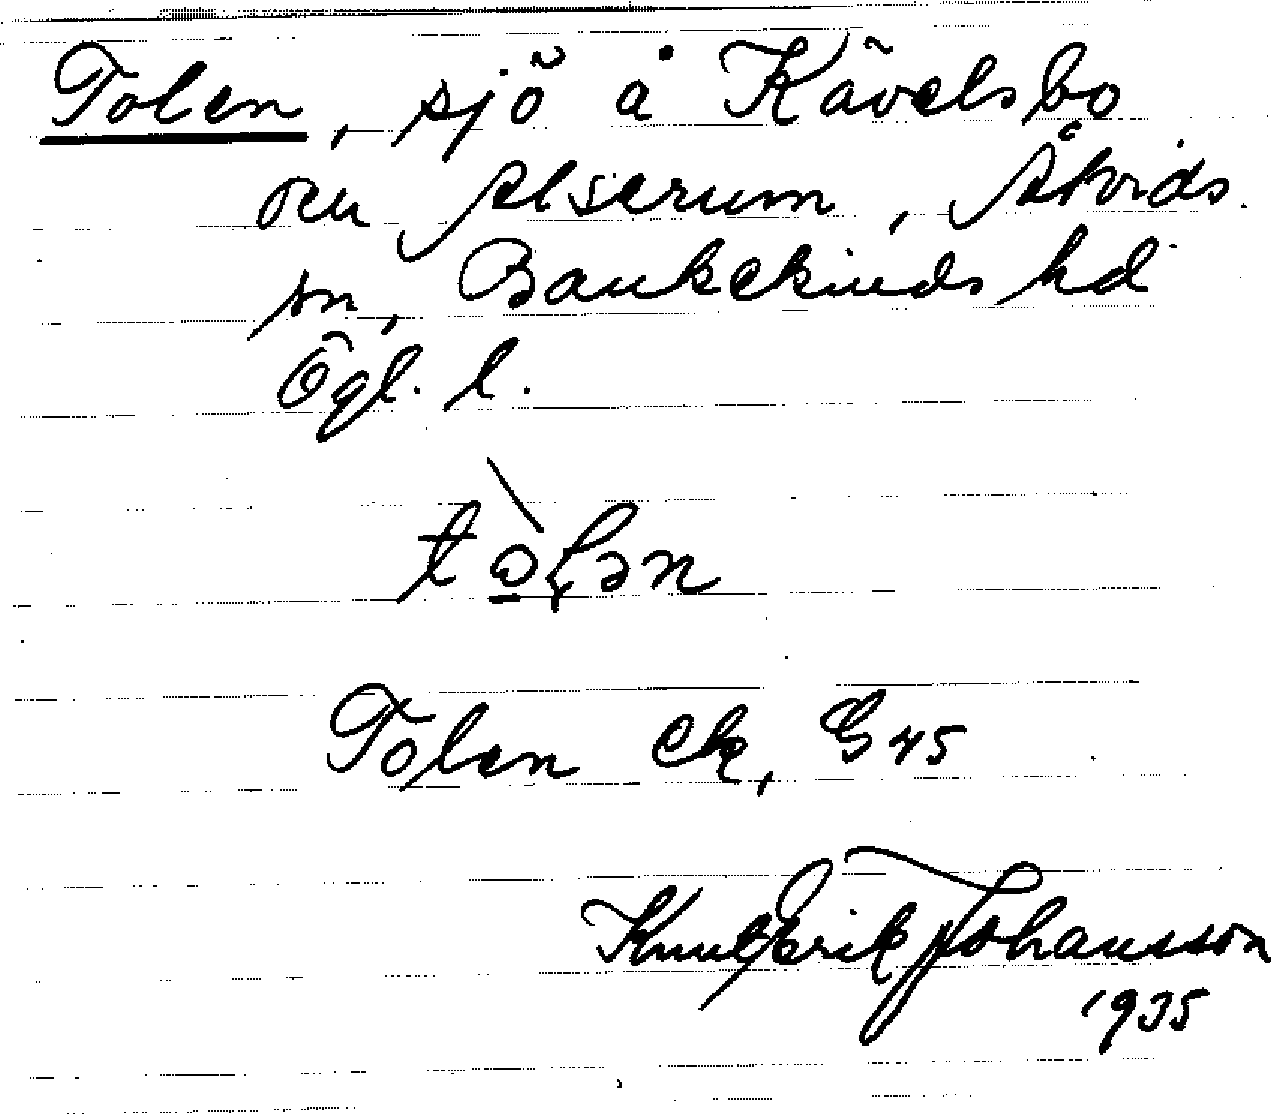 Tolen, sjö å Kävelsbo
och Alserum, Åtvids
sn, Bankekinds hd
Ögl. l.
tò̠ļən
Tolen ek, G 45
Knut Erik Johansson
1935